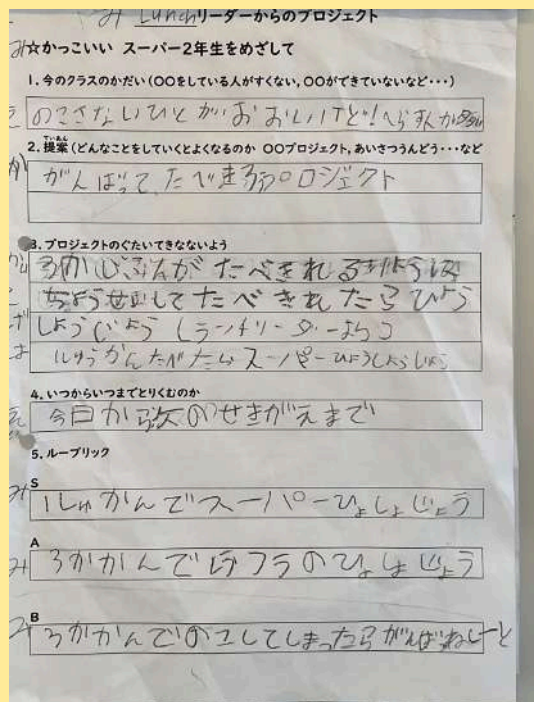 Lunchリーダーからのプロジェクト
☆かっこいい スーパー2年生をめざして
1. 今のクラスのかだい(〇〇をしている人がすくない, 〇〇ができていないなど・・・)
のこさないひとがおおいけど!へらす人が
2. 提案(どんなことをしていくとよくなるのか 〇〇プロジェクト, あいさつうんどう・・・など
ていあん
がんばって、たべきろうプロジェクト
3. プロジェクトのぐたいてきなないよう
3かじぶんがたべきれるりょうに
ちょうせいしてたべきれたらひょう
しょうじょう(ランチリーダーから)
1しゅうかんたべたらスーパーひょうしょうじょう
4. いつからいつまでとりくむのか
今日から次のせきがえまで
5. ルーブリック
S
1しゅかんでスーパーひょしょじょう
A
3かかんで のひょしょじょう
B
3かかんでのこしてしまったらがんばっねしーと